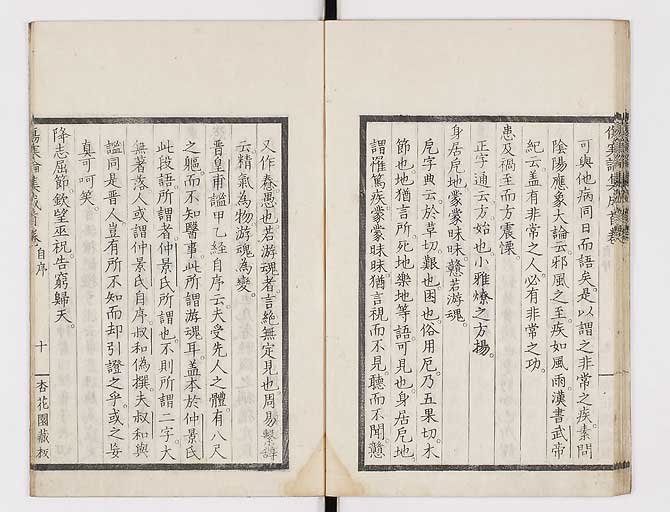 傷寒論集成首卷
可與他病同日而語矣是以謂之非常之疾素問
陰陽應象大論云邪風之至疾如風雨漢書武帝
紀云蓋有非常之人必有非常之功
患及禍至而方震慄
正字通云方始也小雅燎之方揚
身居厄地蒙蒙昧昧戇若游魂
厄字典云於草切艱也困也俗用厄乃五果切木
節也地猶言所死地樂地等語可見也身居厄地
謂罹篤疾蒙蒙昧昧猶言視而不見聽而不聞戇
又作惷愚也若游魂者言絶無定見也周易繫辭
云精氣為物游魂為變
晋皇甫謐甲乙經自序云夫受先人之體有八尺
之軀而不知醫事此所謂游魂耳蓋本於仲景氏
此段語所謂者仲景氏所謂也不則所謂二字大
無著落人或謂仲景氏自序叔和偽撰夫叔和與
謐同是晋人豈有所不知而却引證之乎或之妄
真可呵笑
降志屈節欽望巫祝告窮歸天
傷寒論集成首卷 自序 十 杏花園藏板